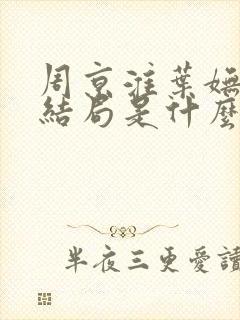 周京淮葉嫵
結局是什麼
半夜三更愛讀